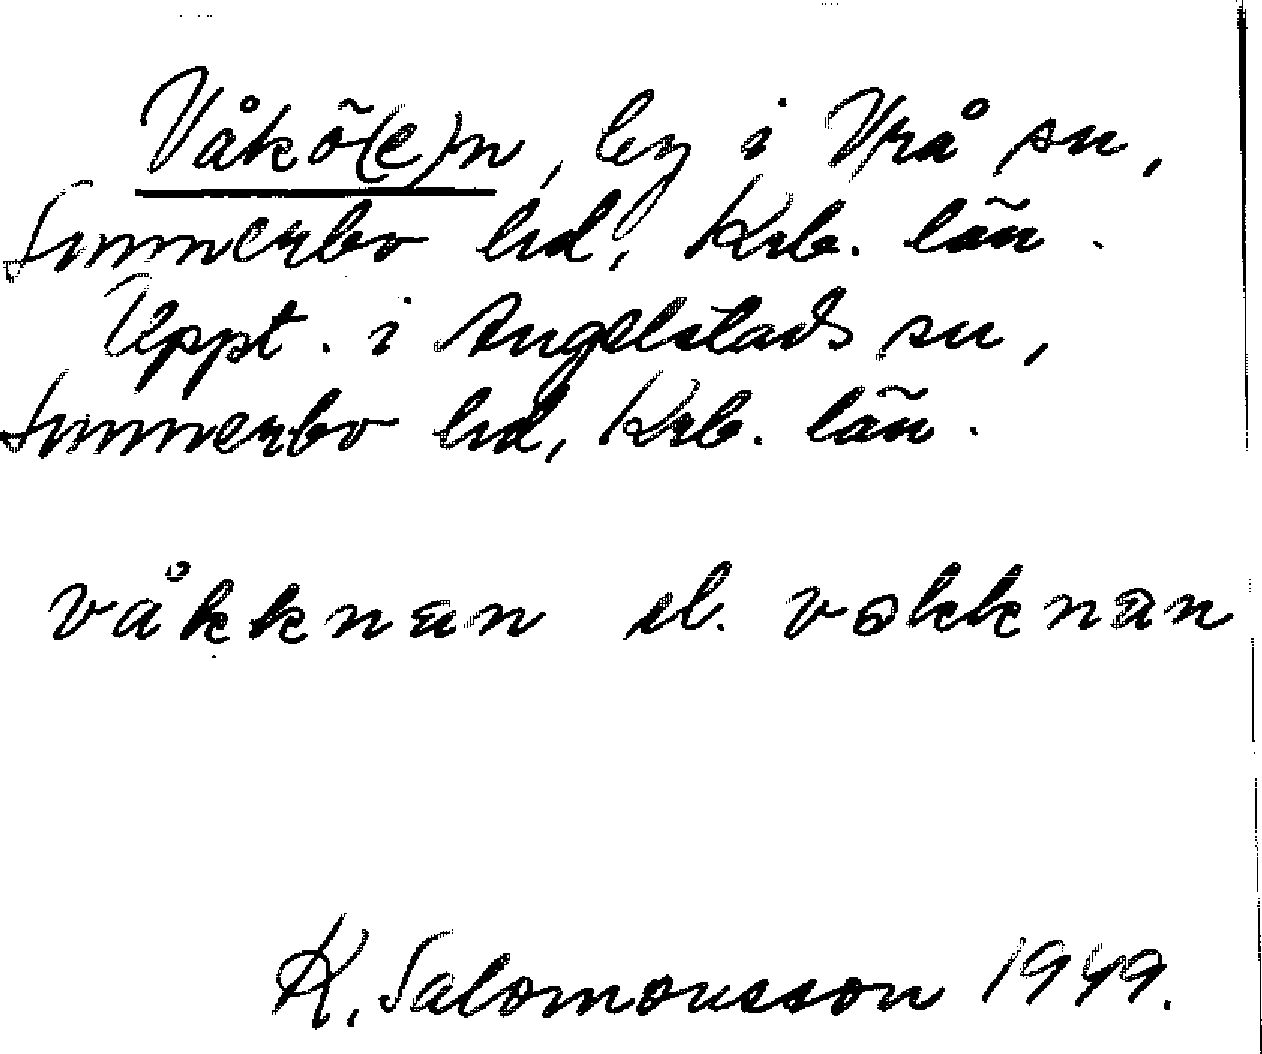 Våkö(e)n, by i Vrå sn,
Sunnerbo hd, Krb. län.
Uppt. i Angelstads sn,
Sunnerbo hd, Krb. län.
våkknan el. våkknan
K. Salomonsson 1949.